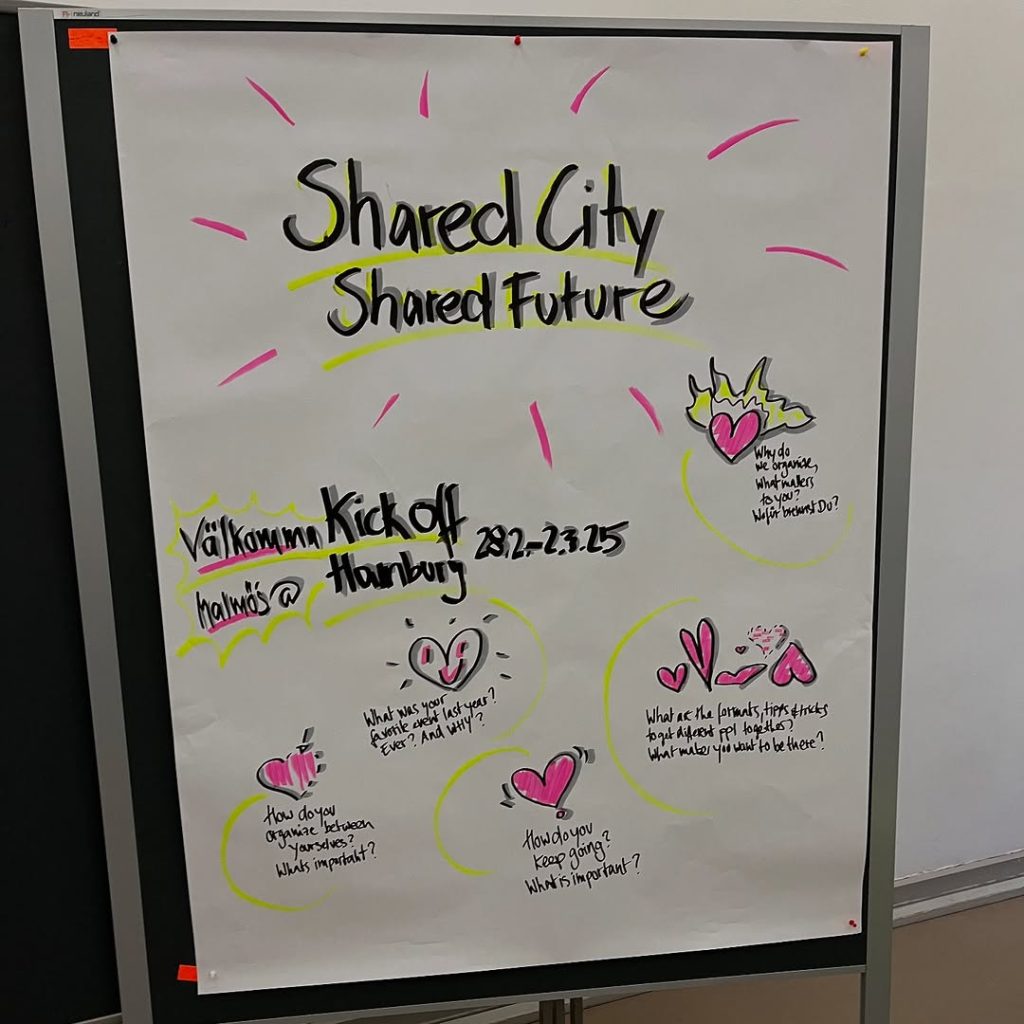 neuland
Shared City
Shared Future
Välkomma
Malmö's @
Kick off
Hamburg
28.2.-2.3.25
Why do
we organize,
What matters
to you?
Wofür brennst Du?
What was your
favorite event last year?
Ever? And why?
What are the formats, tipps & tricks
to get different ppl together?
What makes you want to be there?
How do you
organize between
yourselves?
Whats important?
How do you
keep going?
What is important?